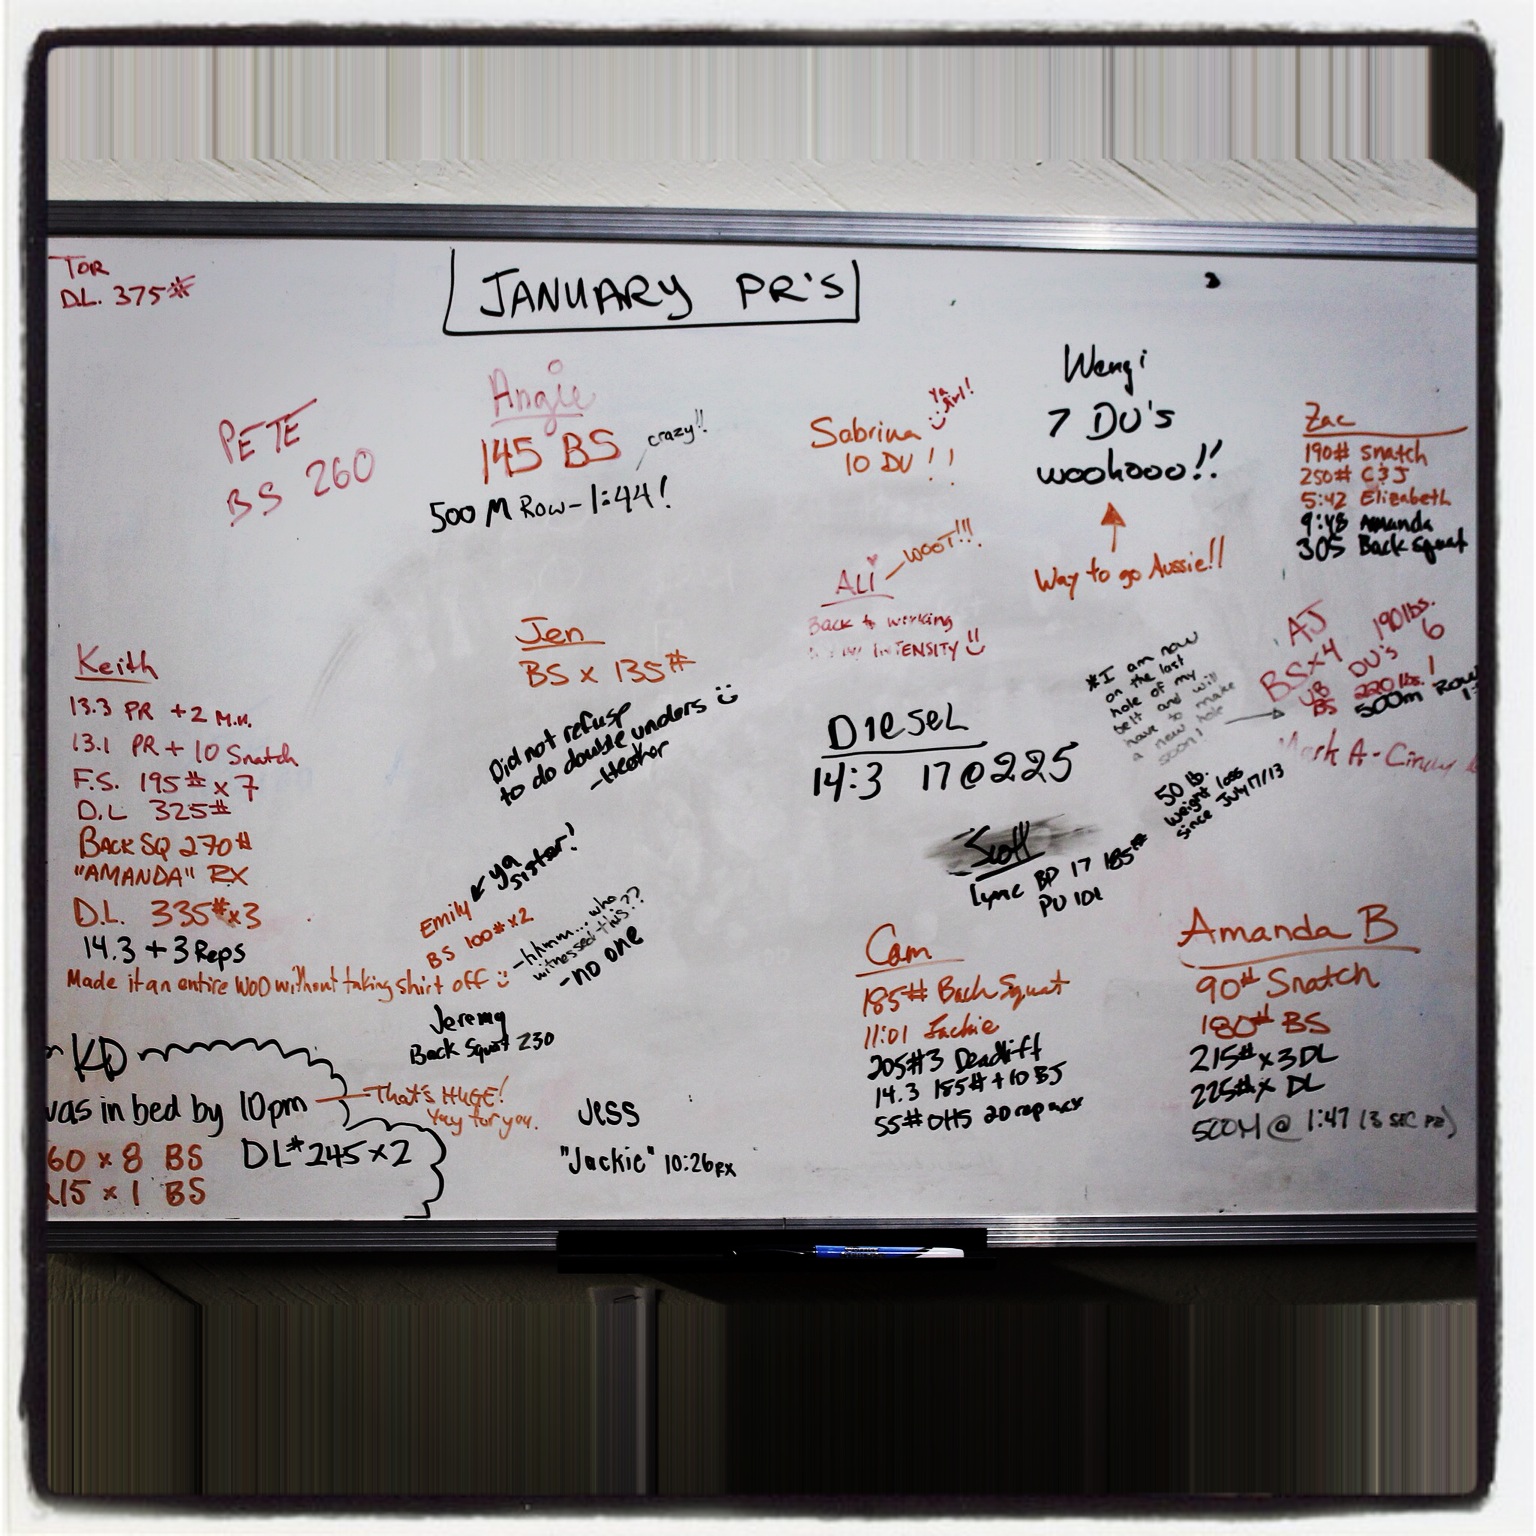 TOR
D.L. 375#
JANUARY PR'S
PETE
BS 260
Angie
145 BS
crazy!!
500 M Row - 1:44!
Sabrina
Ya
Girl!
10 DU!!
Wengi
7 DU's
woohooo!!
Way to go Aussie!!
Zac
190# Snatch
250# C&J
5:42 Elizabeth
9:48 Amanda
305 Back Squat
ALi
WOOT!!!
Back to working
INTENSITY
Jen
BS x 135#
Did not refuse
to do double unders
-Heather
Keith
13.3 PR +2 M.U.
13.1 PR + 10 Snatch
F.S. 195# x 7
D.L 325#
BACK SQ 270#
"AMANDA" RX
D.L. 335# x3
14.3 + 3 Reps
Made it an entire WOD without taking shirt off
DIESEL
14:3 17@225
*I am now
on the last
hole of my
belt and will
have to make
a new hole
soon!
AJ
BS x 4 190 lbs.
UB DU's 6
BS 220 lbs. 1
500m Row
Mark A - Cindy
50 lb.
weight loss
since July/13
Scott
Lyne BP 17 185#
PU 101
ya
sister!
Emily
BS 100# x2
-hhmm... who
witnessed this??
- no one
Jeremy
Back Squat 230
KD
was in bed by 10pm
That's HUGE!
Yay for you.
60 x 8 BS
DL# 245 x 2
15 x 1 BS
Jess
"Jackie" 10:26 RX
Cam
185# Back Squat
11:01 Jackie
205#3 Deadlift
14.3 155# + 10 BJ
55# OHS 20 rep
Amanda B
90# Snatch
180# BS
215# x 3 DL
225# x DL
500M @ 1:47 (3 SEC PR)